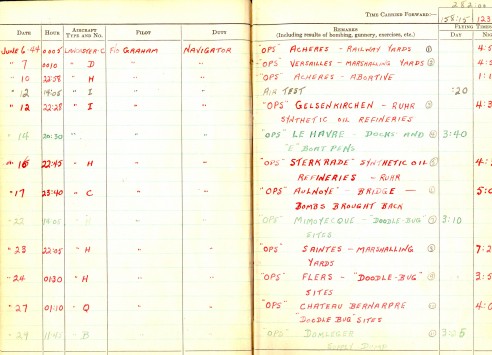 282:00
TIME CARRIED FORWARD:— 158:15 123:
DATE HOUR AIRCRAFT TYPE AND NO. PILOT DUTY REMARKS (Including results of bombing, gunnery, exercises, etc.) FLYING TIMES DAY NIG
JUNE 6-44 0005 LANCASTER-C F/O GRAHAM NAVIGATOR "OPS" ACHERES - RAILWAY YARDS ① 4:
" 7 0010 " D " " "OPS" VERSAILLES - MARSHALLING YARDS ② 4:
" 10 22:58 " H " " "OPS" ACHERES - ABORTIVE 1:
" 12 14:05 " I " " AIR TEST :20
" 12 22:28 " I " " "OPS" GELSENKIRCHEN - RUHR 4:
SYNTHETIC OIL REFINERIES
" 14 20:30 " " " "OPS" LE HAVRE - DOCKS AND 3:40
"E" BOAT PENS
" 16 22:45 " H " " "OPS" STERKRADE SYNTHETIC OIL 4:
REFINERIES - RUHR
" 17 23:40 " C " " "OPS" AULNOYE - BRIDGE — 5:
BOMBS BROUGHT BACK
" 22 " " "OPS" MIMOYECQUE - "DOODLE-BUG" 3:10
SITES
" 23 22:05 " H " " "OPS" SAINTES - MARSHALLING 7:2
YARDS
" 24 0130 " H " " "OPS" FLERS - "DOODLE-BUG" 3:5
SITES
" 27 01:10 " Q " " "OPS" CHATEAU BERNAPRE 4:
"DOODLE BUG" SITES
" 29 " B " " "OPS" DOMLEGER